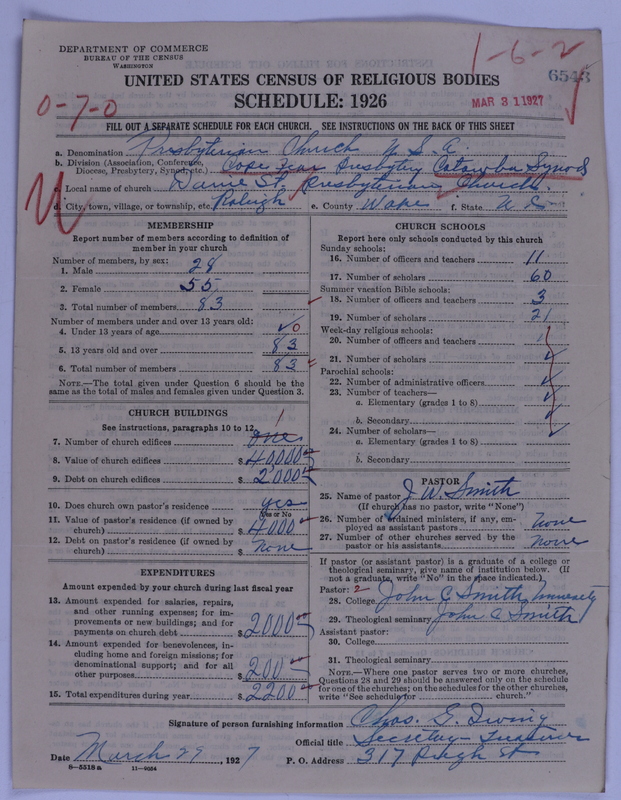 DEPARTMENT OF COMMERCE
BUREAU OF THE CENSUS
WASHINGTON
1-6-2
6543
UNITED STATES CENSUS OF RELIGIOUS BODIES
0-7-0
SCHEDULE: 1926
MAR 31 1927
FILL OUT A SEPARATE SCHEDULE FOR EACH CHURCH. SEE INSTRUCTIONS ON THE BACK OF THIS SHEET
a. Denomination Presbyterian Church U.S.A.
b. Division (Association, Conference, Diocese, Presbytery, Synod, etc.) Cape Fear Presbytery Catawba Synod
c. Local name of church Davie St. Presbyterian Church.
d. City, town, village, or township, etc. Raleigh e. County Wake f. State
MEMBERSHIP
Report number of members according to definition of member in your church
Number of members, by sex:
1. Male 28
2. Female 55
3. Total number of members 83
Number of members under and over 13 years old:
4. Under 13 years of age 0
5. 13 years old and over 83
6. Total number of members 83
NOTE.—The total given under Question 6 should be the same as the total of males and females given under Question 3.
CHURCH BUILDINGS
See instructions, paragraphs 10 to 12
1
7. Number of church edifices one
8. Value of church edifices $ 40000
9. Debt on church edifices $ 2000
10. Does church own pastor's residence yes
Yes or No
11. Value of pastor's residence (if owned by church) $ 4000
12. Debt on pastor's residence (if owned by church) $ none
EXPENDITURES
Amount expended by your church during last fiscal year
13. Amount expended for salaries, repairs, and other running expenses; for improvements or new buildings; and for payments on church debt $ 2000
14. Amount expended for benevolences, including home and foreign missions; for denominational support; and for all other purposes $ 200
15. Total expenditures during year $ 2200
CHURCH SCHOOLS
Report here only schools conducted by this church
Sunday schools:
16. Number of officers and teachers 11
17. Number of scholars 60
Summer vacation Bible schools:
18. Number of officers and teachers 3
19. Number of scholars 21
Week-day religious schools:
20. Number of officers and teachers
21. Number of scholars
Parochial schools:
22. Number of administrative officers
23. Number of teachers—
a. Elementary (grades 1 to 8)
b. Secondary
24. Number of scholars—
a. Elementary (grades 1 to 8)
b. Secondary
PASTOR
25. Name of pastor J. W. Smith
(If church has no pastor, write "None")
26. Number of ordained ministers, if any, employed as assistant pastors none
27. Number of other churches served by the pastor or his assistants none
If pastor (or assistant pastor) is a graduate of a college or theological seminary, give name of institution below. (If not a graduate, write "No" in the space indicated.)
Pastor: 2
28. College John C Smith University
29. Theological seminary John C Smith
Assistant pastor:
30. College
31. Theological seminary
NOTE.—Where one pastor serves two or more churches, Questions 28 and 29 should be answered only on the schedule for one of the churches; on the schedules for the other churches, write "See schedule for church."
Signature of person furnishing information Chas. G. Irving
Official title Secretary-Treasurer
Date March 29, 1927 P. O. Address 317
8—5518 a 11—9054